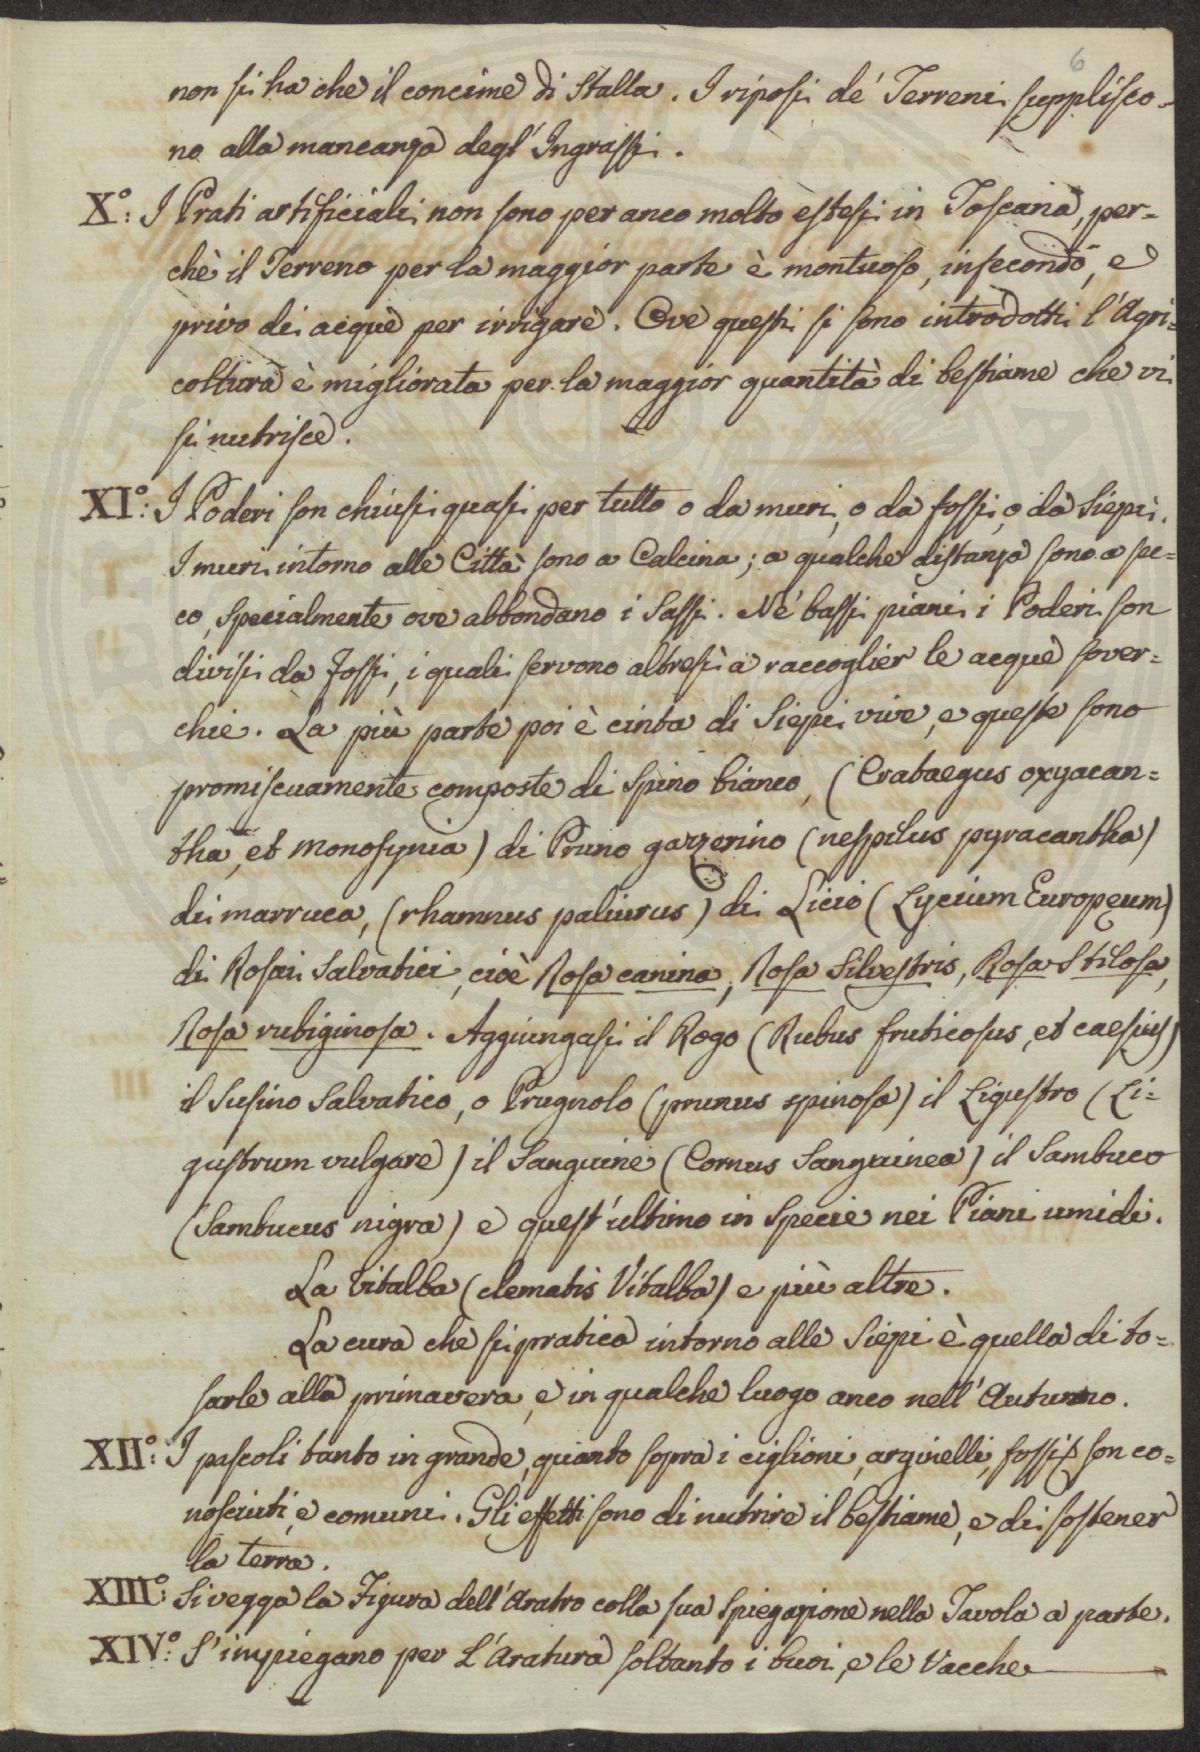 6
non si ha che il concime di Stalla. I riposi de' Terreni supplisco=
no alla mancanza degl' Ingrassi.
X°: I Prati artificiali non sono per anco molto estesi in Toscana, per=
chè il Terreno per la maggior parte è montuoso, infecondo, e
privo di acque per irrigare. Ove questi si sono introdotti l'Agri=
coltura è migliorata per la maggior quantità di bestiame che vi
si nutrisce.
XI°: I Poderi son chiusi quasi per tutto o da muri, o da fossi, o da Siepi.
I muri intorno alle Città sono a Calcina; a qualche distanza sono a se=
co, specialmente ove abbondano i Sassi. Ne' bassi piani i Poderi son
divisi da Fossi, i quali servono altresì a raccoglier le acque sover=
chie. La più parte poi è cinta di Siepi vive, e queste sono
promiscuamente composte di Spino bianco, (Crataegus oxyacan=
tha, et monosynia) di Pruno gazzerino (nespilus pyracantha)
di marruca, (rhamnus paliurus) di Licio (Lycium Europeum)
di Rosai Salvatici, cioè Rosa canina, Rosa Silvestris, Rosa Stilosa,
Rosa rubiginosa. Aggiungasi il Rogo (Rubus fruticosus, et caesius)
il Susino Salvatico, o Prugnolo (prunus spinosa) il Ligustro (Li=
gustrum vulgare) il Sanguine (Cornus Sanguinea) il Sambuco
(Sambucus nigra) e quest'ultimo in Specie nei Piani umidi.
La Vitalba (clematis Vitalba) e più altre.
La cura che si pratica intorno alle Siepi è quella di to=
sarle alla primavera, e in qualche luogo anco nell'Autunno.
XII°: I pascoli tanto in grande, quanto sopra i ciglioni, arginelli, fossi son co=
nosciuti, e comuni. Gli effetti sono di nutrire il bestiame, e di sostener
la terra.
XIII°: Si vegga la Figura dell'Aratro colla sua spiegazione nella Tavola a parte.
XIV°: S'impiegano per L'Aratura soltanto i buoi, e le Vacche